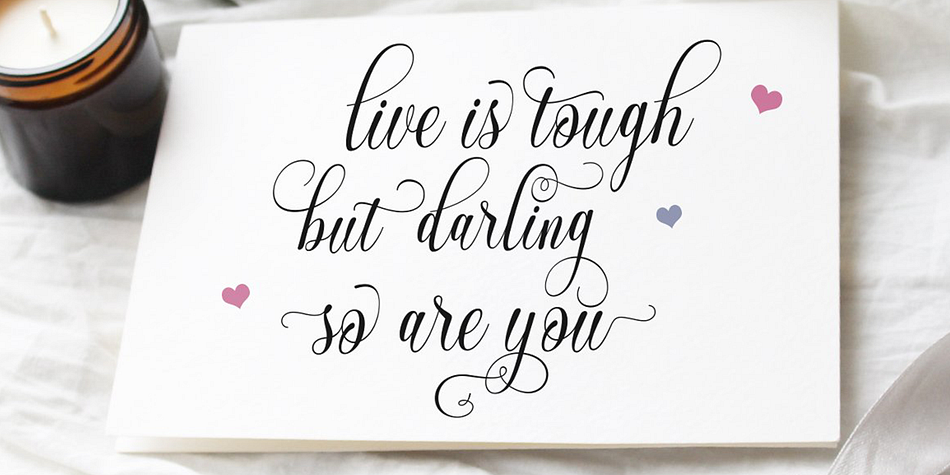 live is tough
but darling
so are you